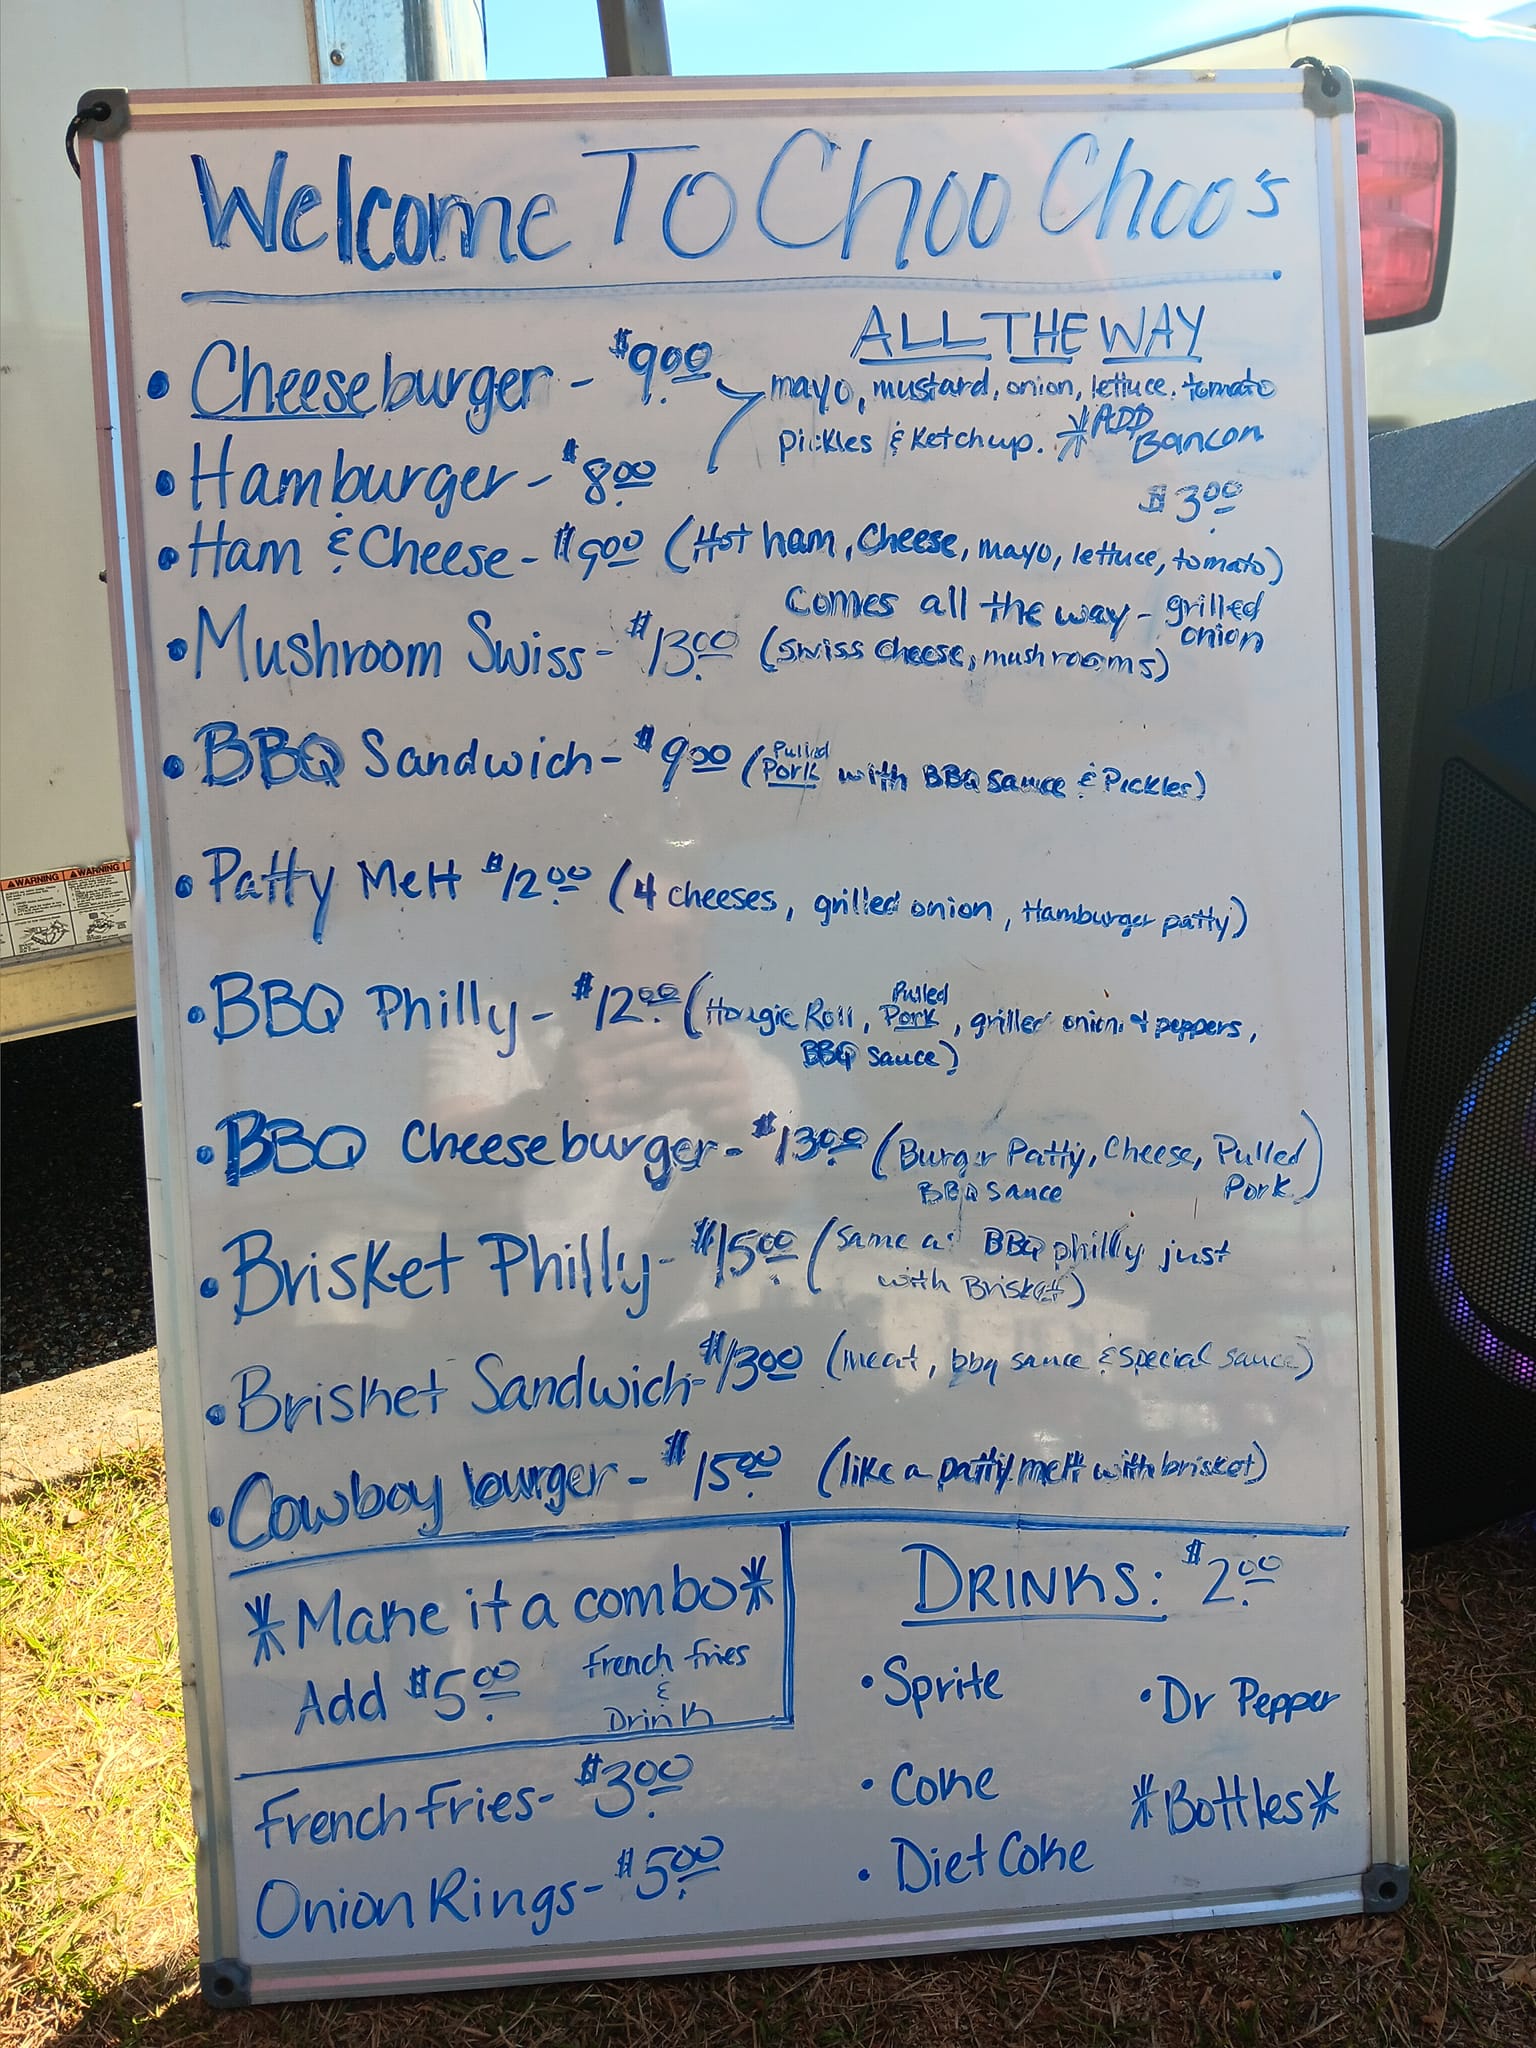 Welcome To Choo Choo's
• Cheeseburger - $9.00
ALL THE WAY
mayo, mustard, onion, lettuce, tomato
pickles & Ketchup. *ADD Bancon
$3.00
• Hamburger - $8.00
• Ham & Cheese - $9.00 (Hot ham, cheese, mayo, lettuce, tomato)
comes all the way - grilled onion
• Mushroom Swiss - $13.00 (swiss cheese, mushrooms)
• BBQ Sandwich - $9.00 (Pulled Pork with BBQ sauce & Pickles)
• Patty Melt $12.00 (4 cheeses, grilled onion, Hamburger patty)
• BBQ Philly - $12.00 (Hougie Roll, Pulled Pork, grilled onion & peppers,
BBQ sauce)
• BBQ Cheeseburger - $13.00 (Burger Patty, Cheese, Pulled Pork)
BBQ sauce
• Brisket Philly - $15.00 (same as BBQ philly just
with Brisket)
• Brisket Sandwich - $13.00 (meat, bbq sauce & special sauce)
• Cowboy burger - $15.00 (like a patty melt with brisket)
*Make it a combo*
Add $5.00 french fries
&
Drink
French fries - $3.00
Onion Rings - $5.00
DRINKS: $2.00
• Sprite
• Dr Pepper
• Coke
*Bottles*
• Diet Coke
WARNING
WARNING